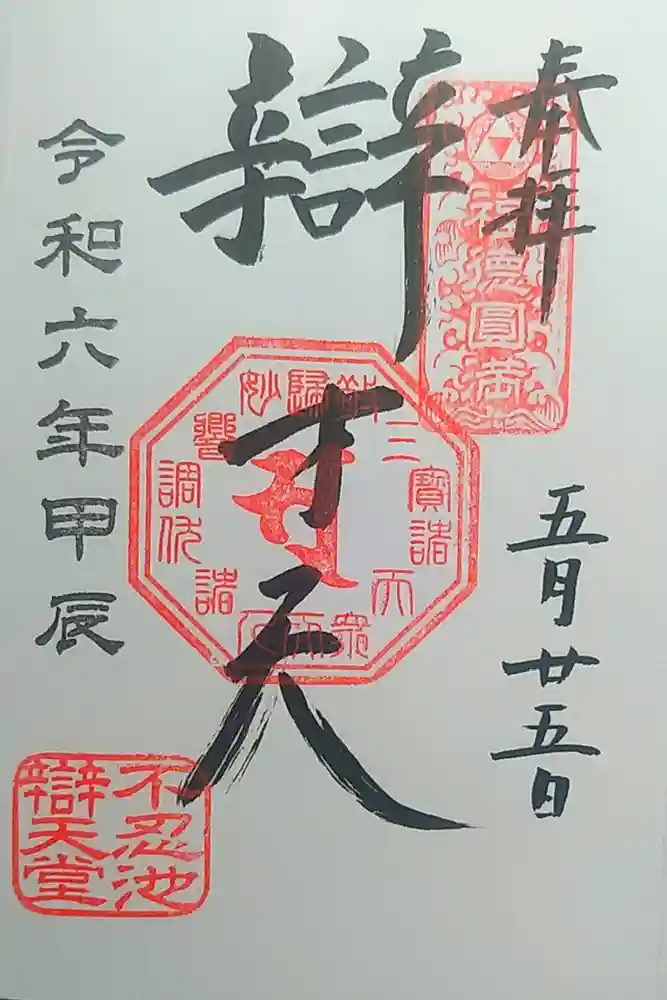 奉拝
福徳圓満
五月廿五日
辯才天
三寶諸天
衆
諸
調伏
響
妙
歸
令和六年甲辰
不忍池
辯天堂